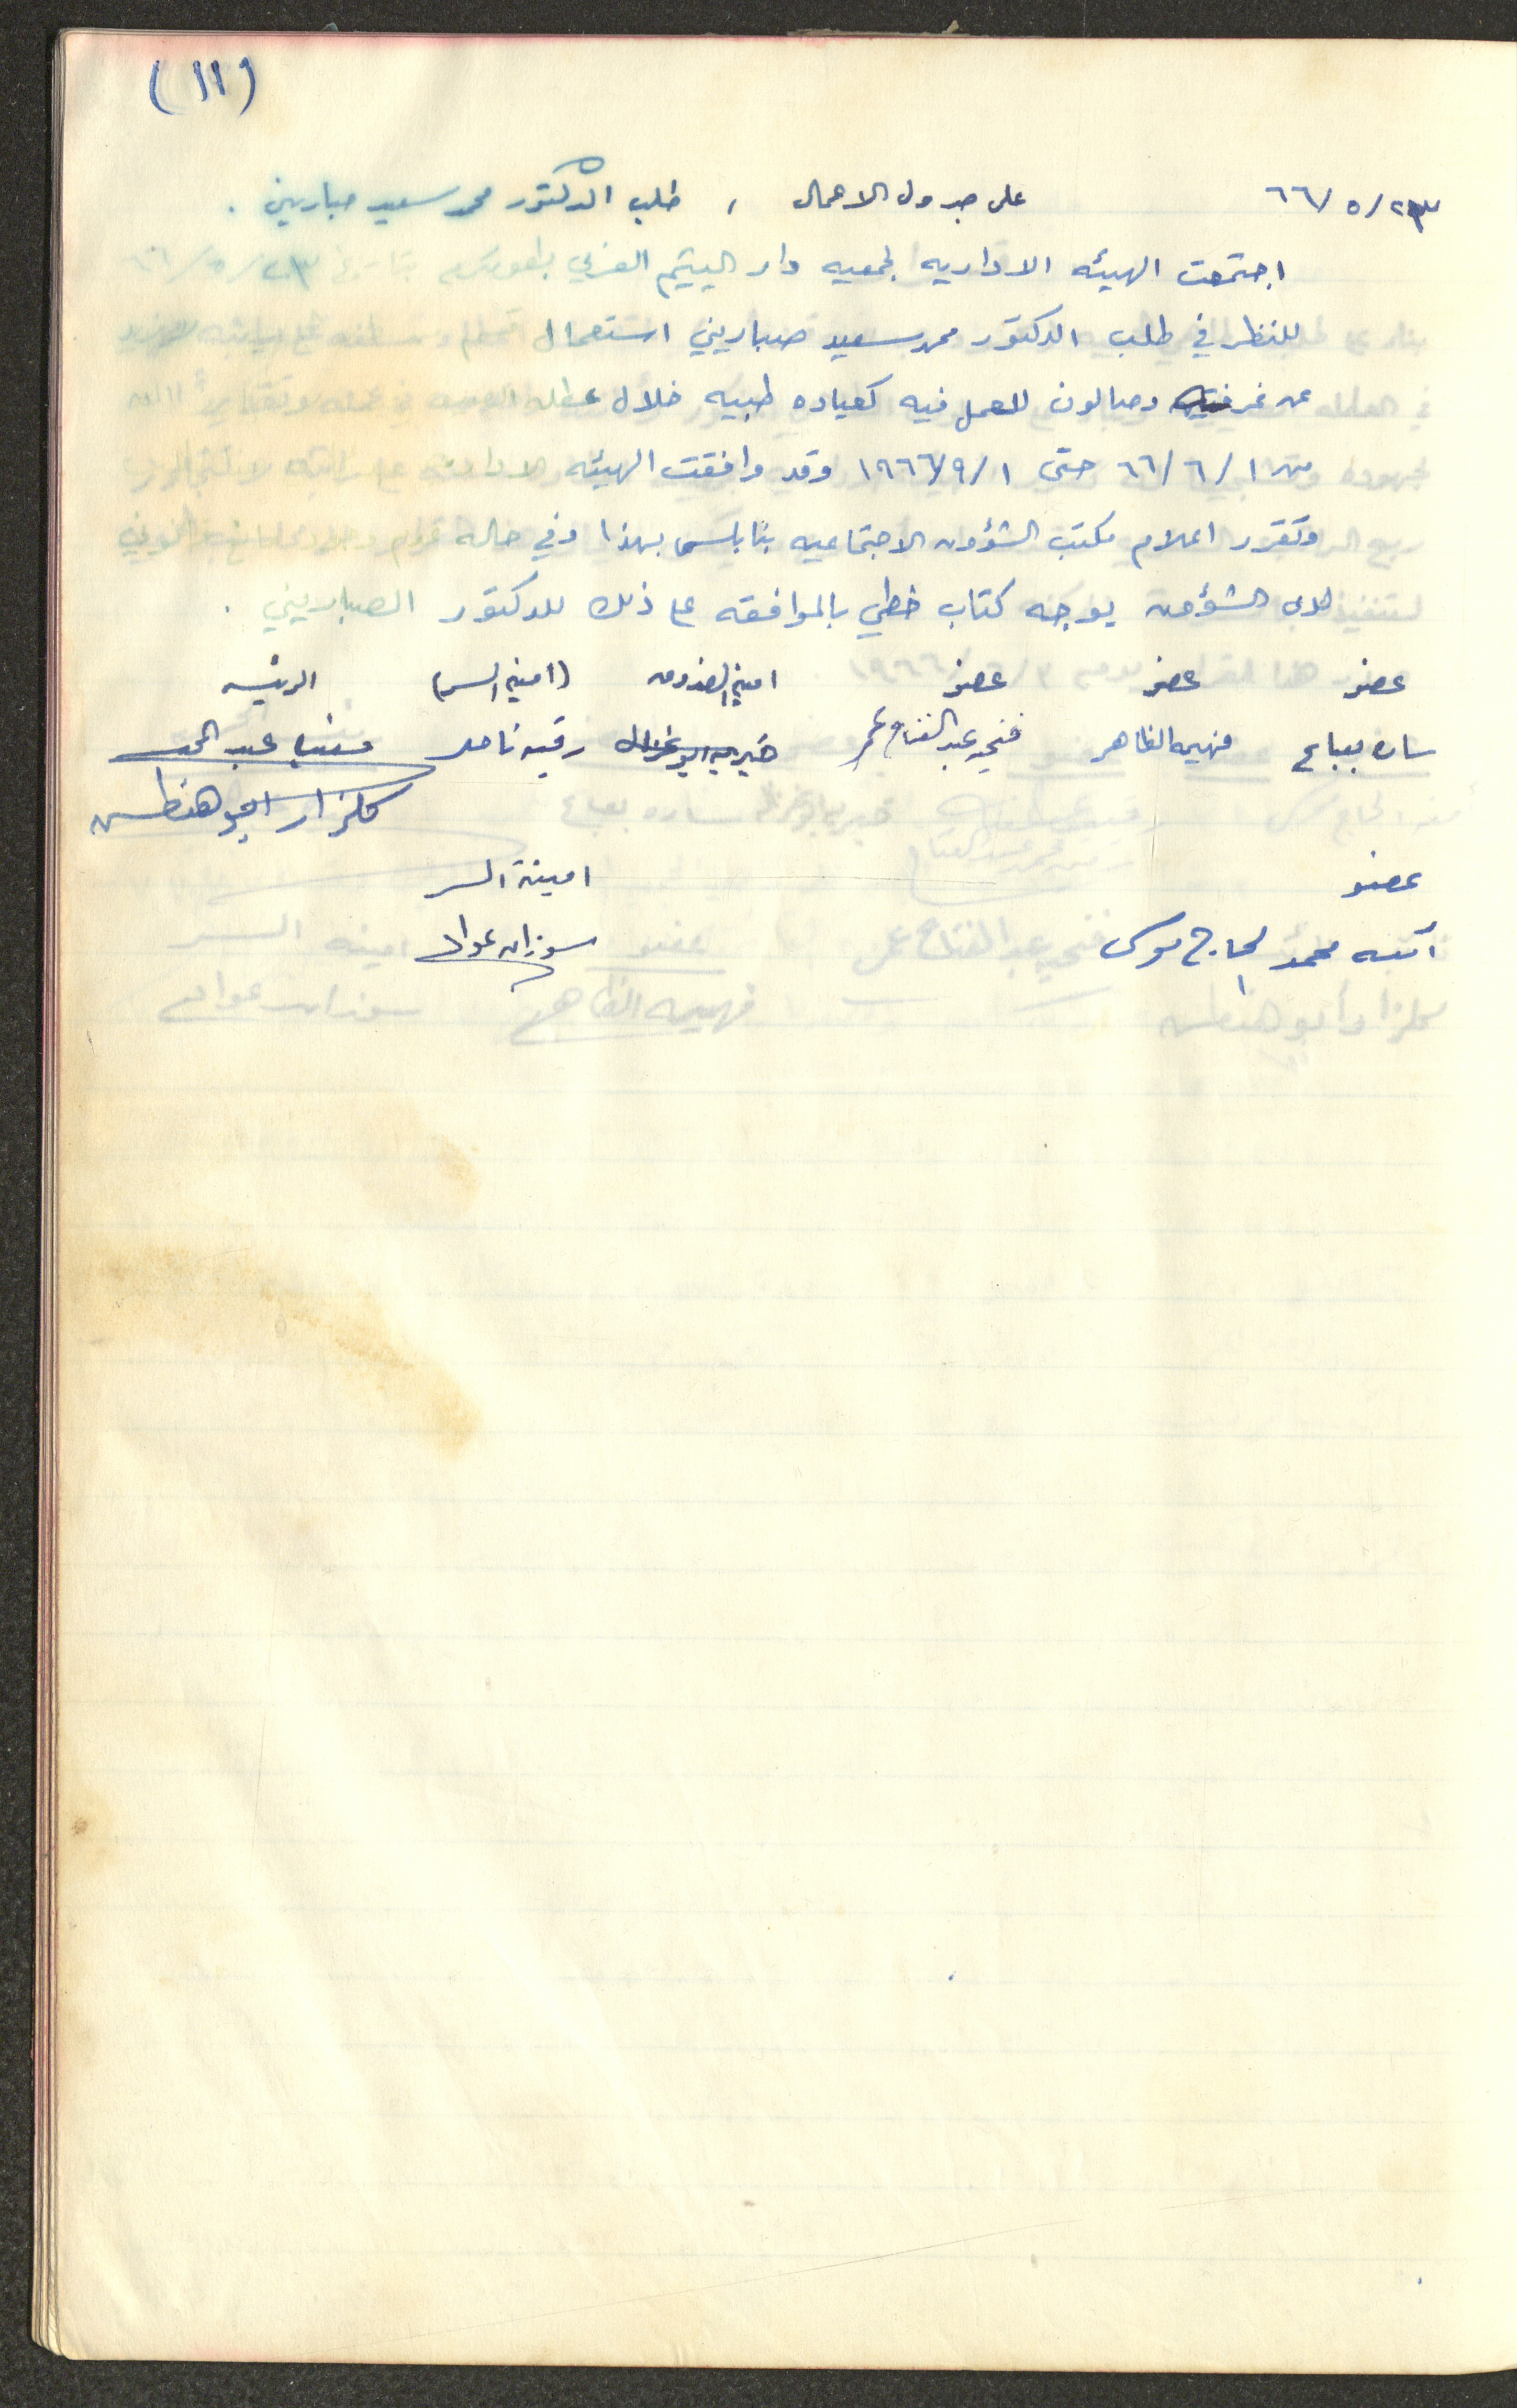 (١١)
٦٦/٥/٢٣ على جدول الاعمال ، طلب الدكتور محمد سعيد صباريني .
اجتمعت الهيئه الاداريه لجمعيه دار اليتيم العربي بطولكرم بتاريخ ٦٦/٥/٢٣
للنظر في طلب الدكتور محمد سعيد صباريني استعمال
عن غرفتين وصالون للعمل فيه كعياده طبيه خلال عطله
من ٦٦/٦/١ حتى ١٩٦٦/٩/١ وقد وافقت الهيئه الاداريه على
وتقرر اعلام مكتب الشؤون الاجتماعيه بنابلس بهذا وفي حاله
لدى الشؤون يوجه كتاب خطي بالموافقه على ذلك للدكتور الصباريني .
عضو عضو عضو امين الصندوق (امين السر) الرئيسه
ساره بعباع فهيمه الظاهر فتحيه عبد الفتاح عمر خيريه ابو غزاله رقيه ناصر عبد الحميد
كلزار ابو هنطش
عضو امينة السر
آمنه محمد الحاج موسى سوزان عواد